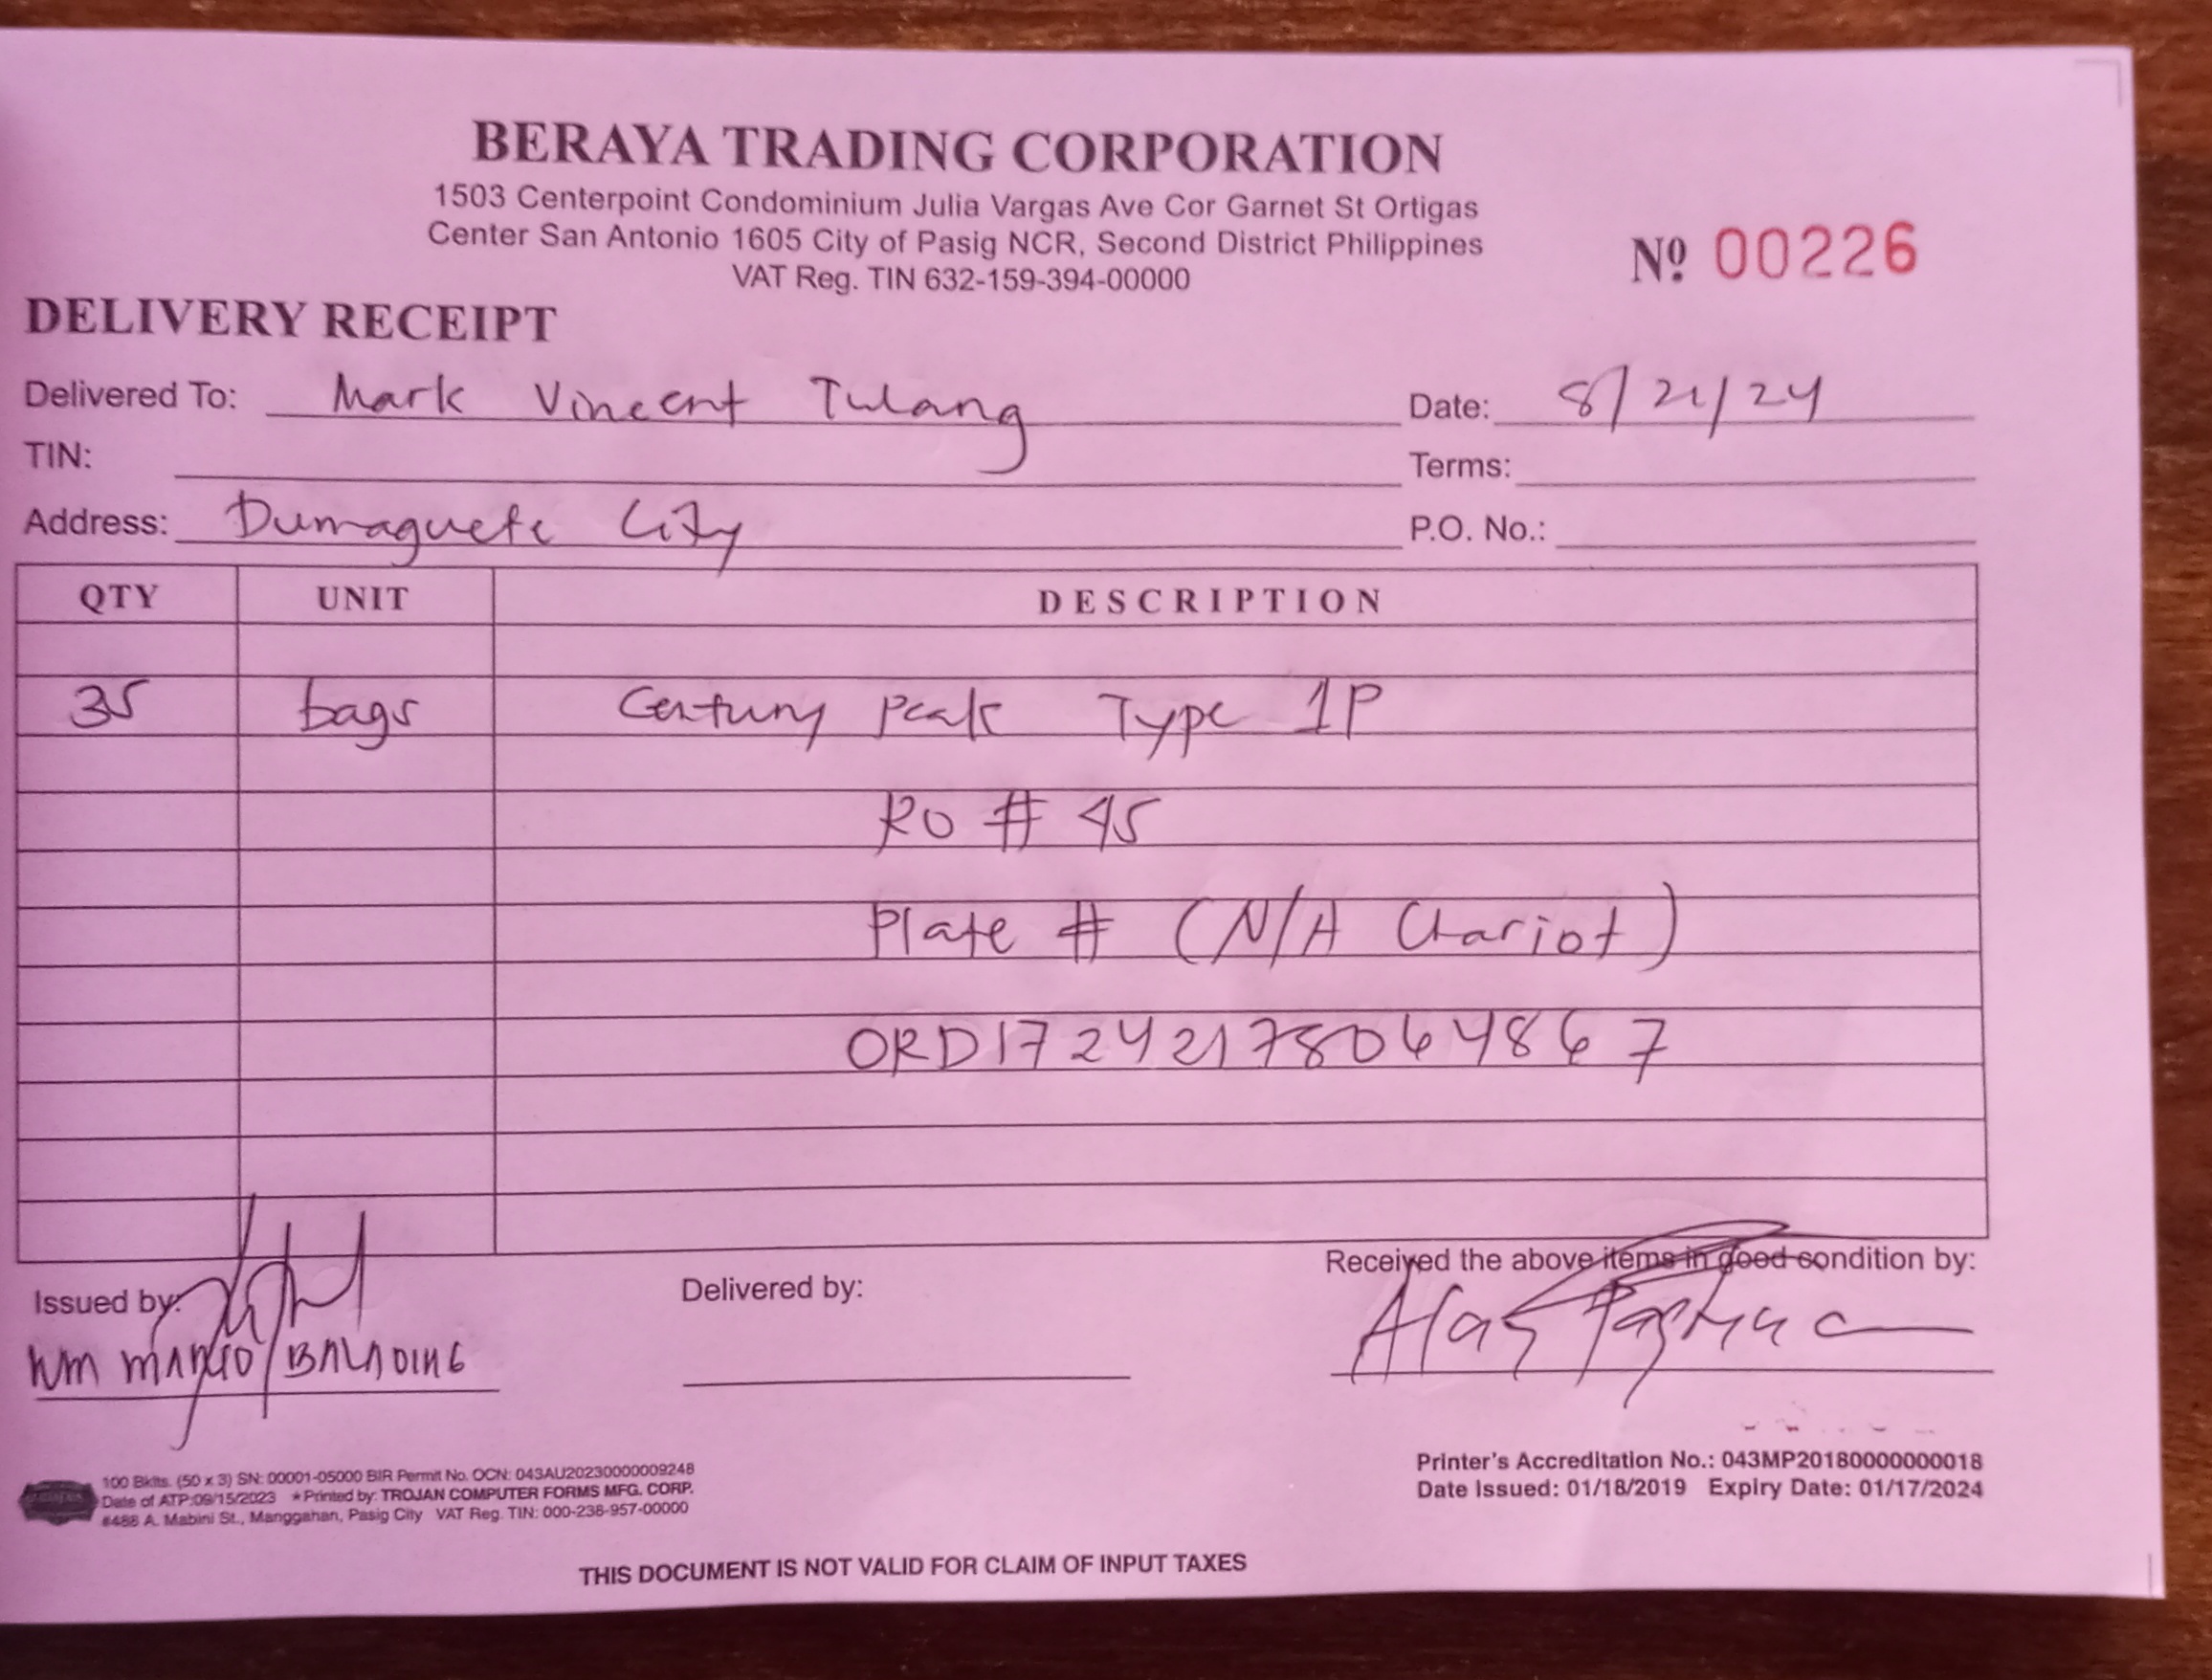 BERAYA TRADING CORPORATION
1503 Centerpoint Condominium Julia Vargas Ave Cor Garnet St Ortigas
Center San Antonio 1605 City of Pasig NCR, Second District Philippines
VAT Reg. TIN 632-159-394-00000
Nº 00226
DELIVERY RECEIPT
Delivered To: Mark Vincent Tulang Date: 8/21/24
TIN: Terms:
Address: Dumaguete City P.O. No.:
QTY UNIT DESCRIPTION
35 bags Century Peak Type 1P
RO # 45
Plate # (N/A Chariot)
ORD1724217806484867
Received the above items in good condition by:
Issued by: Delivered by:
WM MANCIO/BALADING
100 Bklts. (50 x 3) SN: 00001-05000 BIR Permit No. OCN: 043AU20230000009248
Date of ATP:09/15/2023 ★Printed by: TROJAN COMPUTER FORMS MFG. CORP.
#488 A. Mabini St., Manggahan, Pasig City VAT Reg. TIN: 000-238-957-00000
Printer's Accreditation No.: 043MP20180000000018
Date Issued: 01/18/2019 Expiry Date: 01/17/2024
THIS DOCUMENT IS NOT VALID FOR CLAIM OF INPUT TAXES